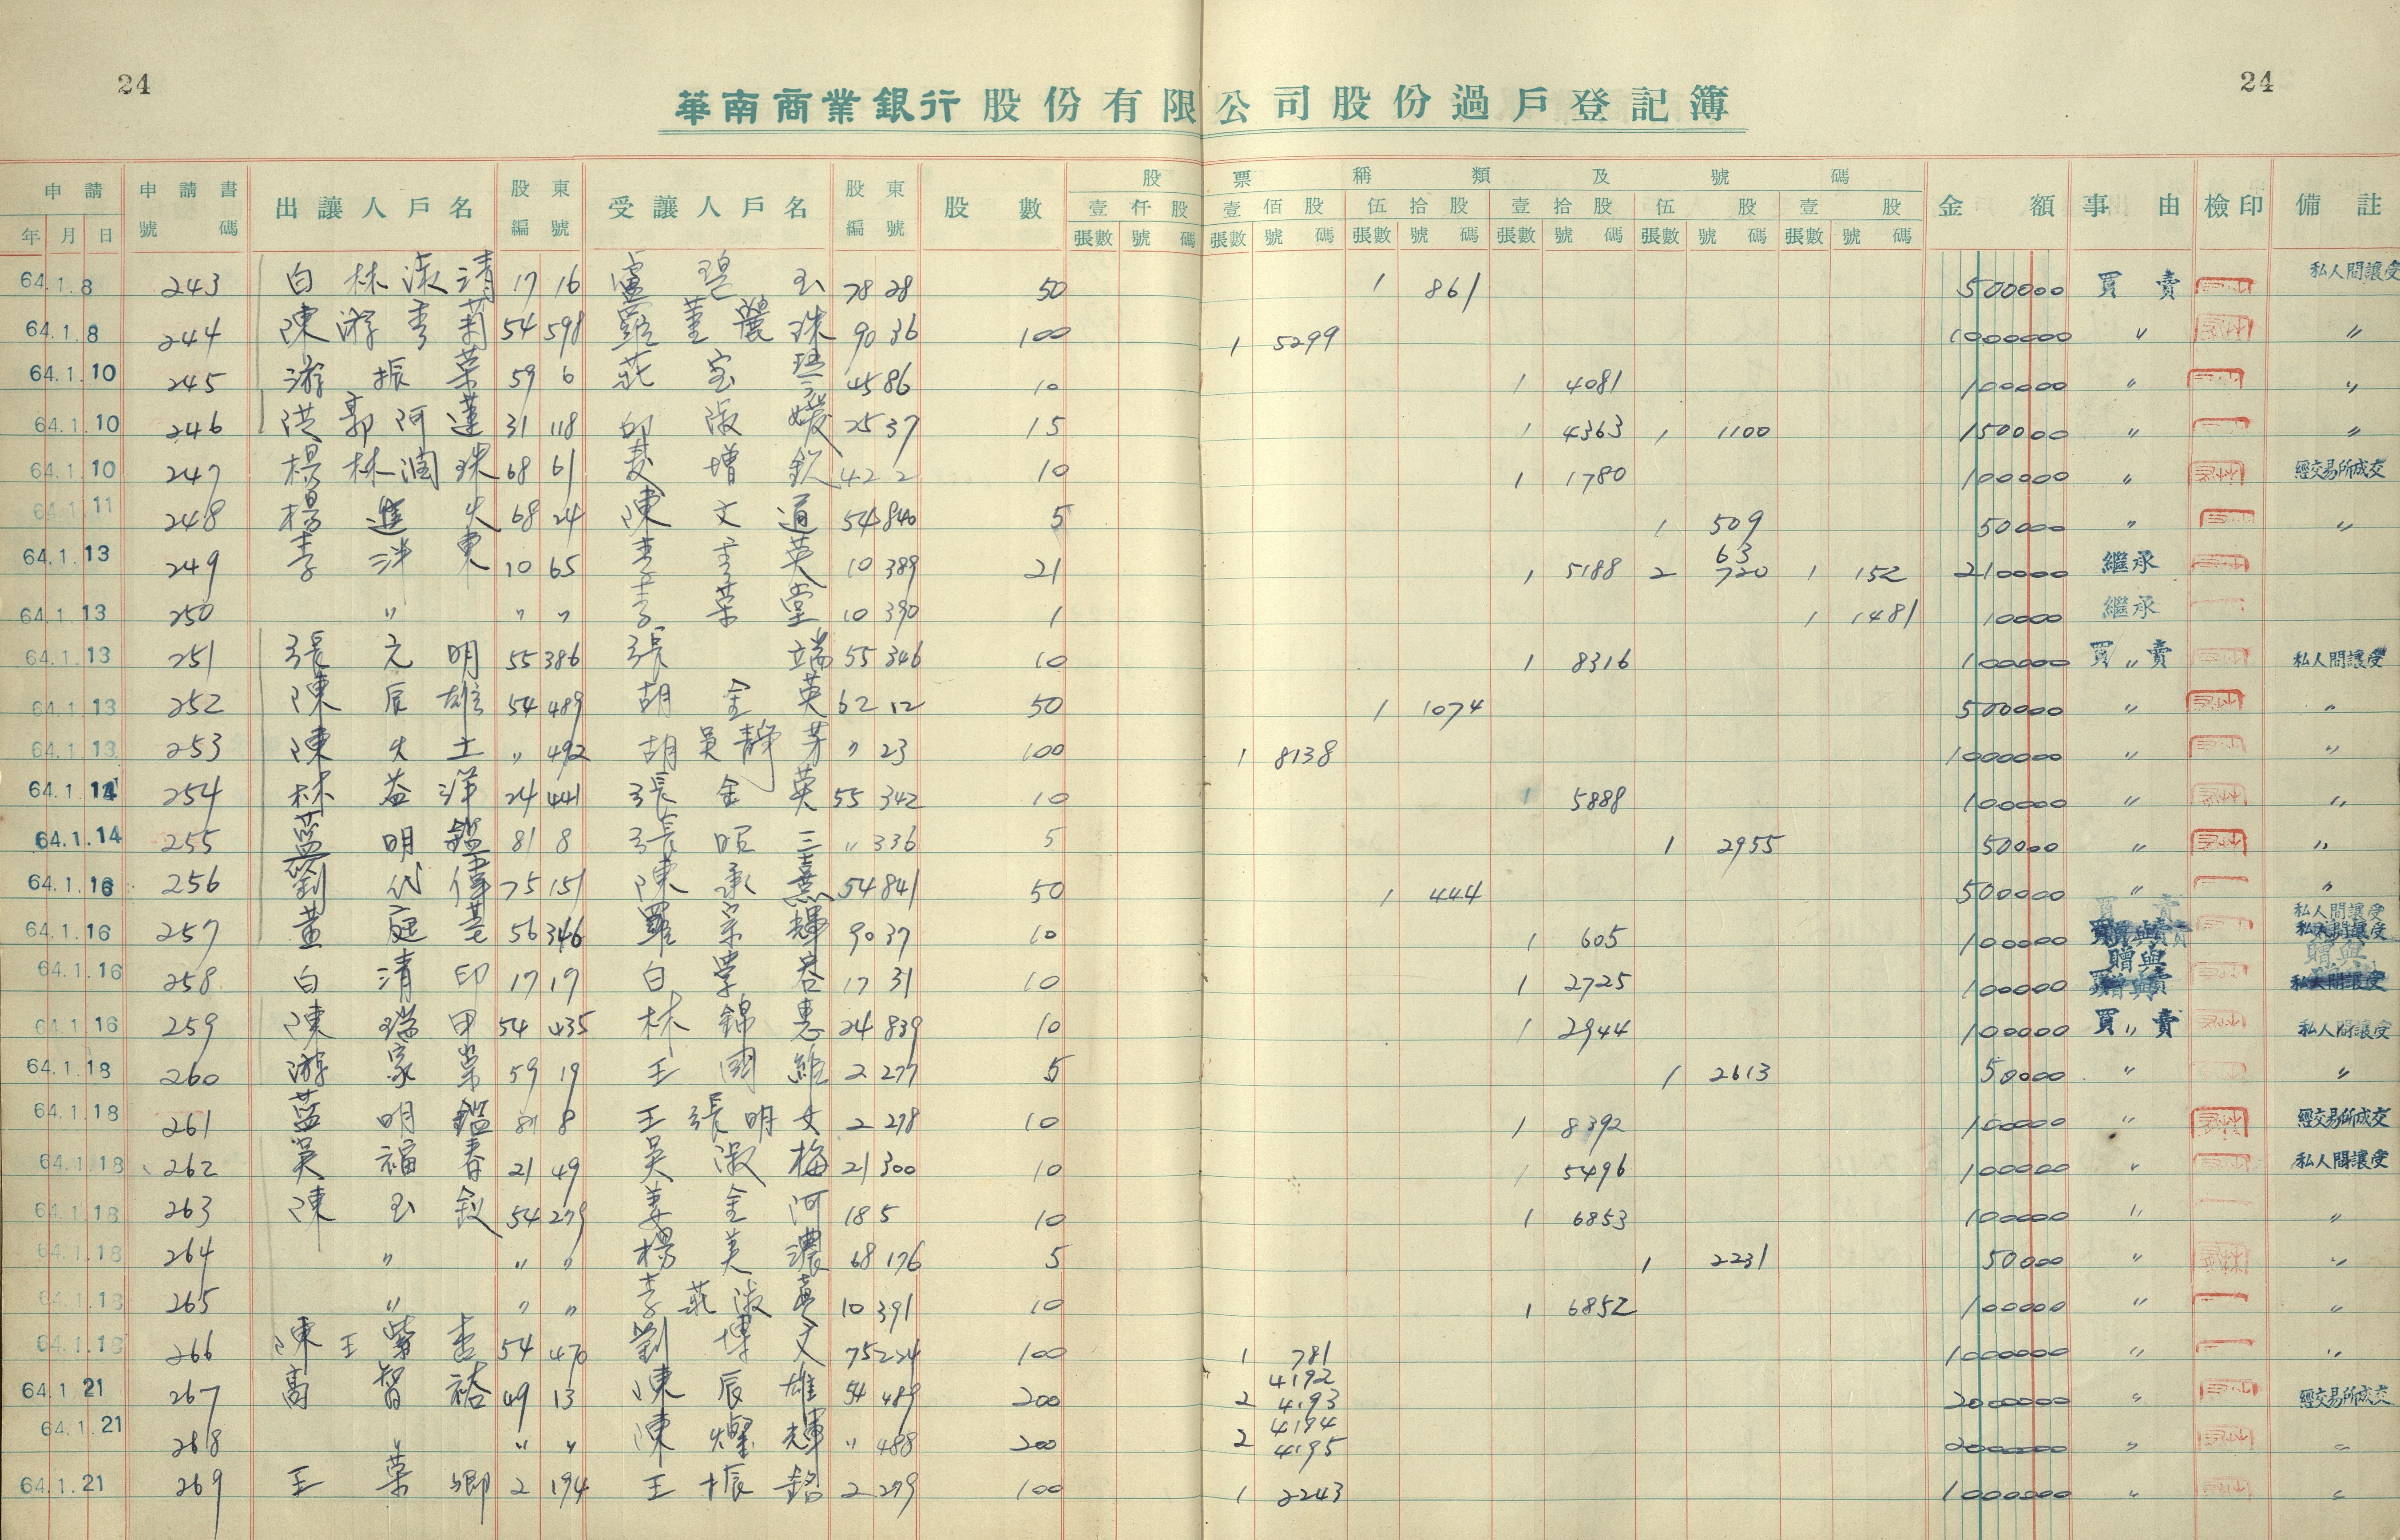 24
24
華南商業銀行股份有限公司股份過戶登記簿
申請 申請書 出讓人戶名 股東 受讓人戶名 股東 股數 股票種類及號碼 金額 事由 檢印 備註
年 月 日 號碼 編號 編號 壹仟股 壹佰股 伍拾股 壹拾股 伍股 壹股
張數 號碼 張數 號碼 張數 號碼 張數 號碼 張數 號碼 張數 號碼
64.1.8 243 白林淑清 17 16 盧碧玉 78 28 50 1 861 500000 買賣 私人間讓受
64.1.8 244 陳游秀莉 54 598 羅董麗珠 90 36 100 1 5299 1000000 〃 〃
64.1.10 245 游振榮 59 6 莊宝琴 45 86 10 1 4081 100000 〃 〃
64.1.10 246 洪郭阿蓮 31 118 邱淑媛 25 37 15 1 4363 1 1100 150000 〃 〃
64.1.10 247 楊林潤珠 68 61 增欽 42 2 10 1 1780 100000 〃 經交易所成交
64.1.11 248 楊進火 68 24 陳文道 54 840 5 1 509 50000 〃 〃
64.1.13 249 李洋東 10 65 李英 10 389 21 1 5188 2 63 720 1 152 210000 繼承
64.1.13 250 〃 〃 〃 李榮堂 10 390 1 1 1481 10000 繼承
64.1.13 251 張元明 55 386 張端 55 346 10 1 8316 100000 買〃賣 私人間讓受
64.1.13 252 陳辰雄 54 489 胡金英 62 12 50 1 1074 500000 〃 〃
64.1.13 253 陳火土 〃 492 胡吳靜芳 〃 23 100 1 8138 1000000 〃 〃
64.1.14 254 林益洋 24 441 張金英 55 342 10 1 5888 100000 〃 〃
64.1.14 255 藍明鑑 81 8 張昭三 〃 336 5 1 2955 50000 〃 〃
64.1.16 256 劉代偉 75 151 陳承熹 54 841 50 1 444 500000 〃 〃
64.1.16 257 黃庭芳 56 346 羅宗輝 90 37 10 1 605 100000 買賣 私人間讓受
64.1.16 258 白清印 17 19 白 17 31 10 1 2725 100000 贈與 贈與
64.1.16 259 陳瑞甲 54 435 林錦惠 24 839 10 1 2944 100000 買〃賣 私人間讓受
64.1.18 260 游家榮 59 19 王國維 2 277 5 1 2613 50000 〃 〃
64.1.18 261 藍明鑑 81 8 王張明女 2 278 10 1 8392 100000 〃 經交易所成交
64.1.18 262 吳福春 21 49 吳淑梅 21 300 10 1 5496 100000 〃 私人間讓受
64.1.18 263 陳玉釵 54 279 姜金河 18 5 10 1 6853 100000 〃 〃
64.1.18 264 〃 〃 〃 楊美濃 68 176 5 1 2231 50000 〃 〃
64.1.18 265 〃 〃 〃 李莊淑 10 391 10 1 6852 100000 〃 〃
64.1.18 266 陳王 54 470 劉博文 75 224 100 1 781 1000000 〃 〃
64.1.21 267 高智裕 49 13 陳辰雄 54 489 200 2 4192 4193 2000000 〃 經交易所成交
64.1.21 268 〃 〃 〃 陳燦輝 〃 488 200 2 4194 4195 2000000 〃 〃
64.1.21 269 王榮卿 2 194 王振銘 2 279 100 1 2243 1000000 〃 〃